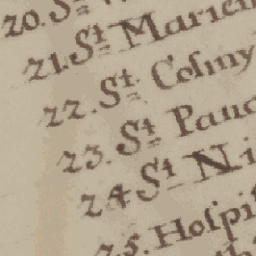 20. St
21. St Marien
22. St Cosmy
23. St Panc
24 St Ni
25. Hospi